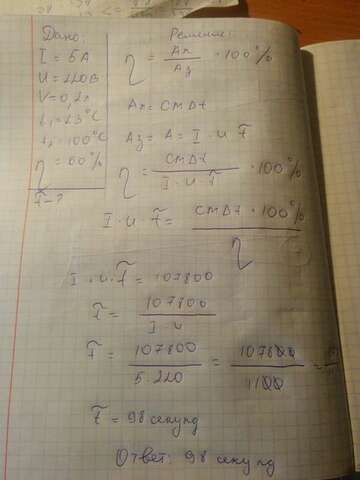 Дано:
I = 5А
U = 220В
V - 0,2л
t₁ = 23°C
t₂ = 100°C
η = 60%
t̃ - ?
Решение:
η = Ап / Аз · 100%
Ап = CmΔt
Аз = А = I · U t̃
η = CmΔt / I · U · t̃ · 100%
I · U t̃ = CmΔt · 100% / η
I · U · t̃ = 107800
t̃ = 107800 / I · U
t̃ = 107800 / 5 · 220 = 107800 / 1100 =
t̃ = 98 секунд
Ответ: 98 секунд